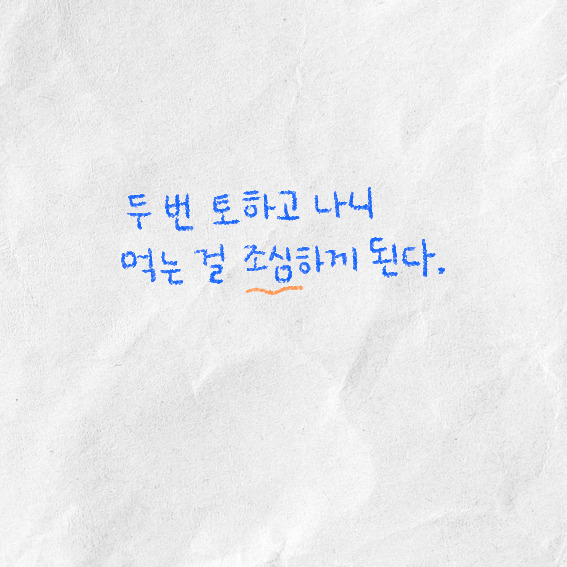 두 번 토하고 나니
먹는 걸 조심하게 된다.